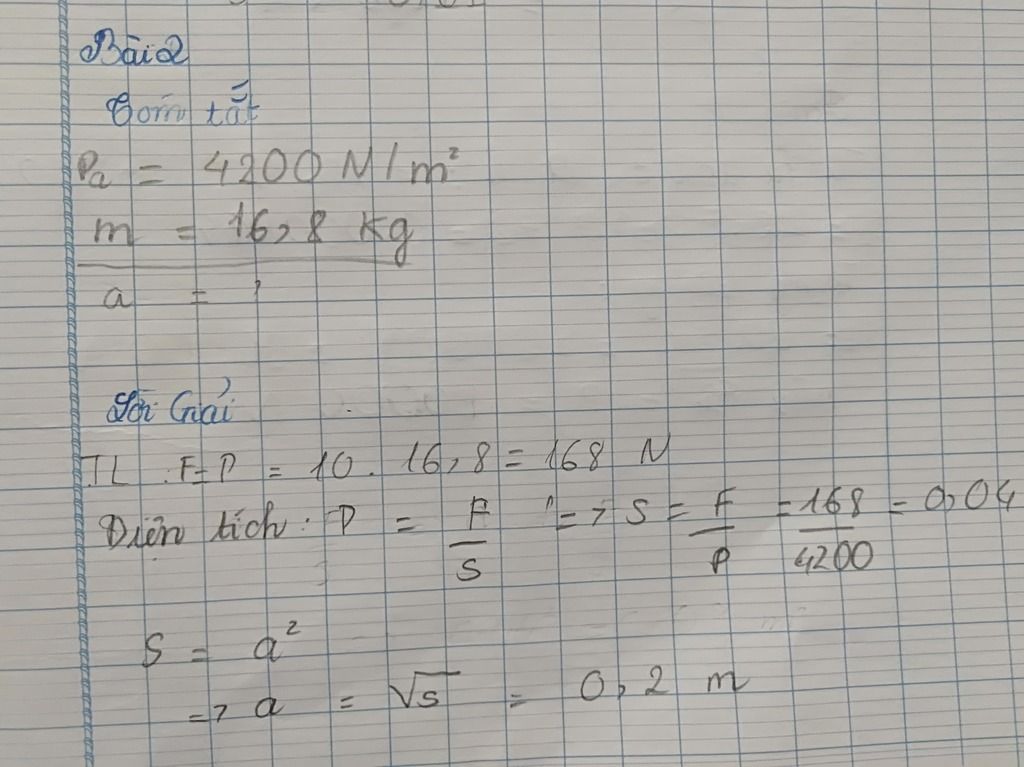 Bài 2
Tóm tắt
Pa = 4200 N/m²
m = 16,8 kg
a = ?
Lời Giải
TL : F=P = 10. 16,8 = 168 N
Diện tích : P = F/S => S = F/P = 168/4200 = 0,04
S = a²
=> a = √S = 0,2 m